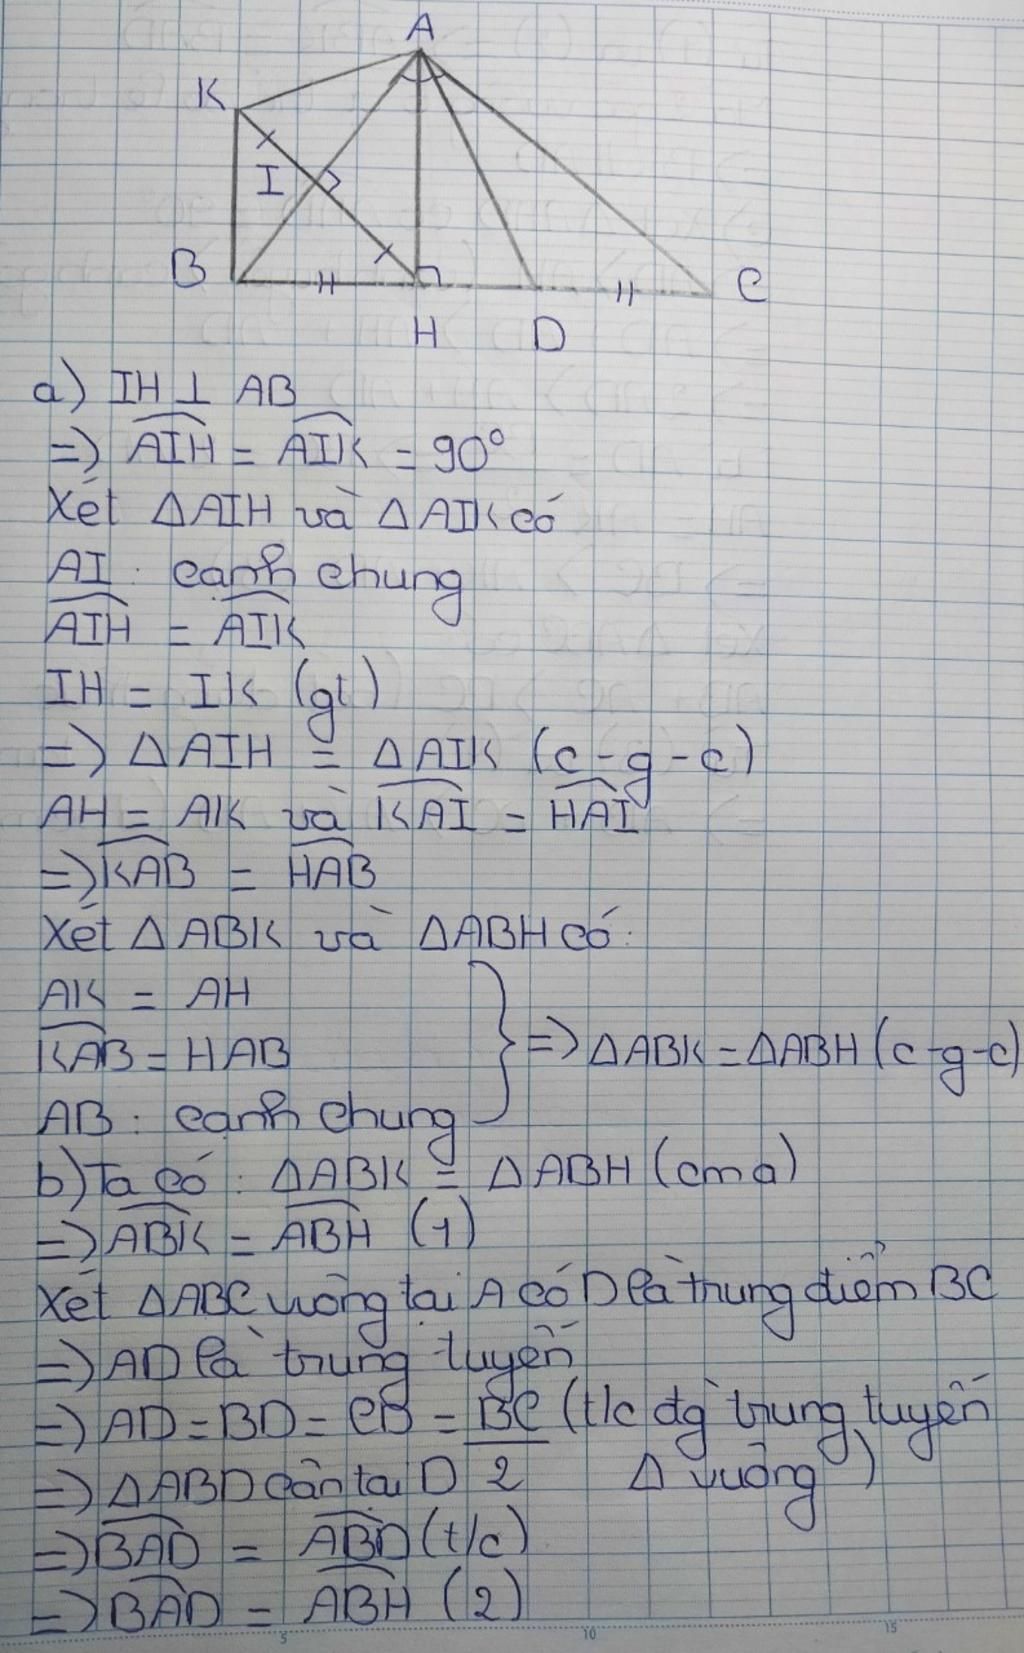 A
K
I
B
C
H
D
a) IH ⊥ AB
=> AIH = AIK = 90°
Xét ΔAIH và ΔAIK có
AI : cạnh chung
AIH = AIK
IH = IK (gt)
=> ΔAIH = ΔAIK (c-g-c)
AH = AK và KAI = HAI
=> KAB = HAB
Xét ΔABK và ΔABH có:
AK = AH
KAB = HAB
AB : cạnh chung
=> ΔABK = ΔABH (c-g-c)
b) Ta có : ΔABK = ΔABH (cma)
=> ABK = ABH (1)
Xét ΔABC vuông tại A có D là trung điểm BC
=> AD là trung tuyến
=> AD = BD = CB = BC/2 (t/c đg trung tuyến
=> ΔABD cân tại D Δ vuông)
=> BAD = ABD (t/c)
=> BAD = ABH (2)
5 10 15